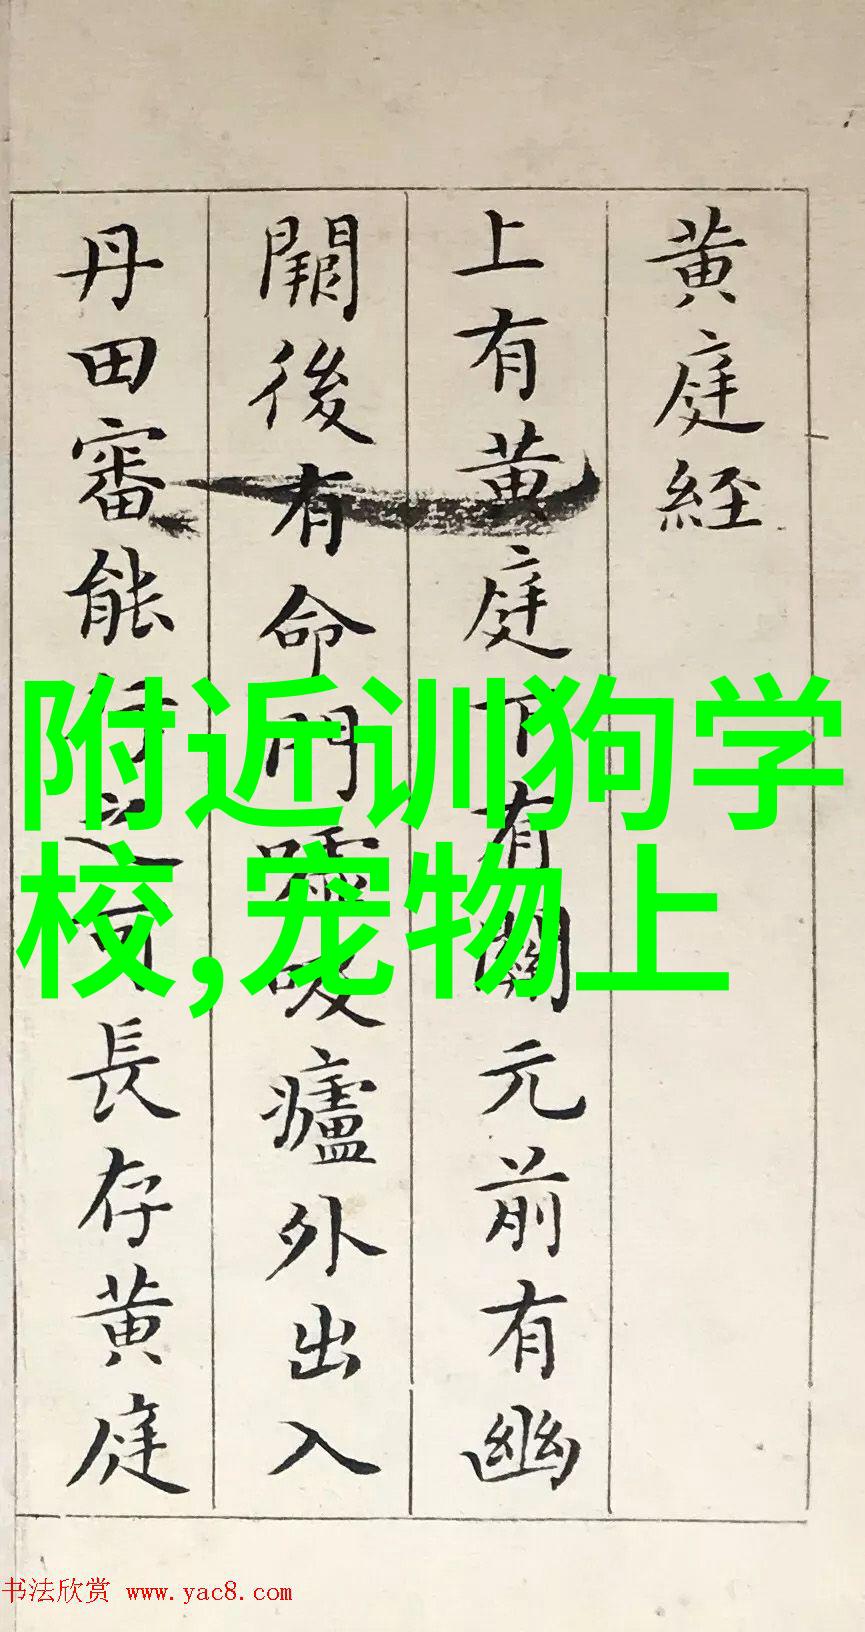 黄庭経
上有黄庭下有關元前有幽
闕後有命門嘘吸廬外出入
丹田審能行之可長存黄庭
附近训狗学
校,宠物上
书法欣赏 www.yac8.com